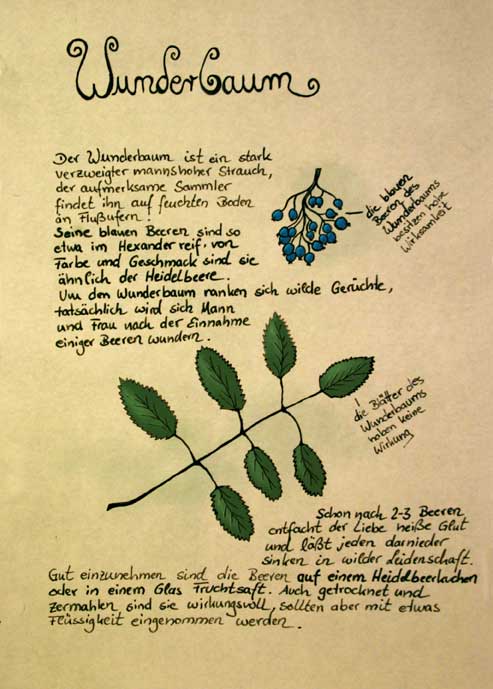 Wunderbaum
Der Wunderbaum ist ein stark
verzweigter mannshoher Strauch,
der aufmerksame Sammler
findet ihn auf feuchten Boden
an Flußufern!
Seine blauen Beeren sind so
etwa im Hexander reif, von
Farbe und Geschmack sind sie
ähnlich der Heidelbeere.
Um den Wunderbaum ranken sich wilde Gerüchte,
tatsächlich wird sich Mann
und Frau nach der Einnahme
einiger Beeren wundern.
die blauen
Beeren des
Wunderbaums
besitzen hohe
Wirksamkeit
! die Blätter des
Wunderbaums
haben keine
Wirkung
Schon nach 2-3 Beeren
entfacht der Liebe heiße Glut
und läßt jeden darnieder
sinken in wilder Leidenschaft.
Gut einzunehmen sind die Beeren auf einem Heidelbeerkuchen
oder in einem Glas Fruchtsaft. Auch getrocknet und
zermahlen sind sie wirkungsvoll, sollten aber mit etwas
Flüssigkeit eingenommen werden.